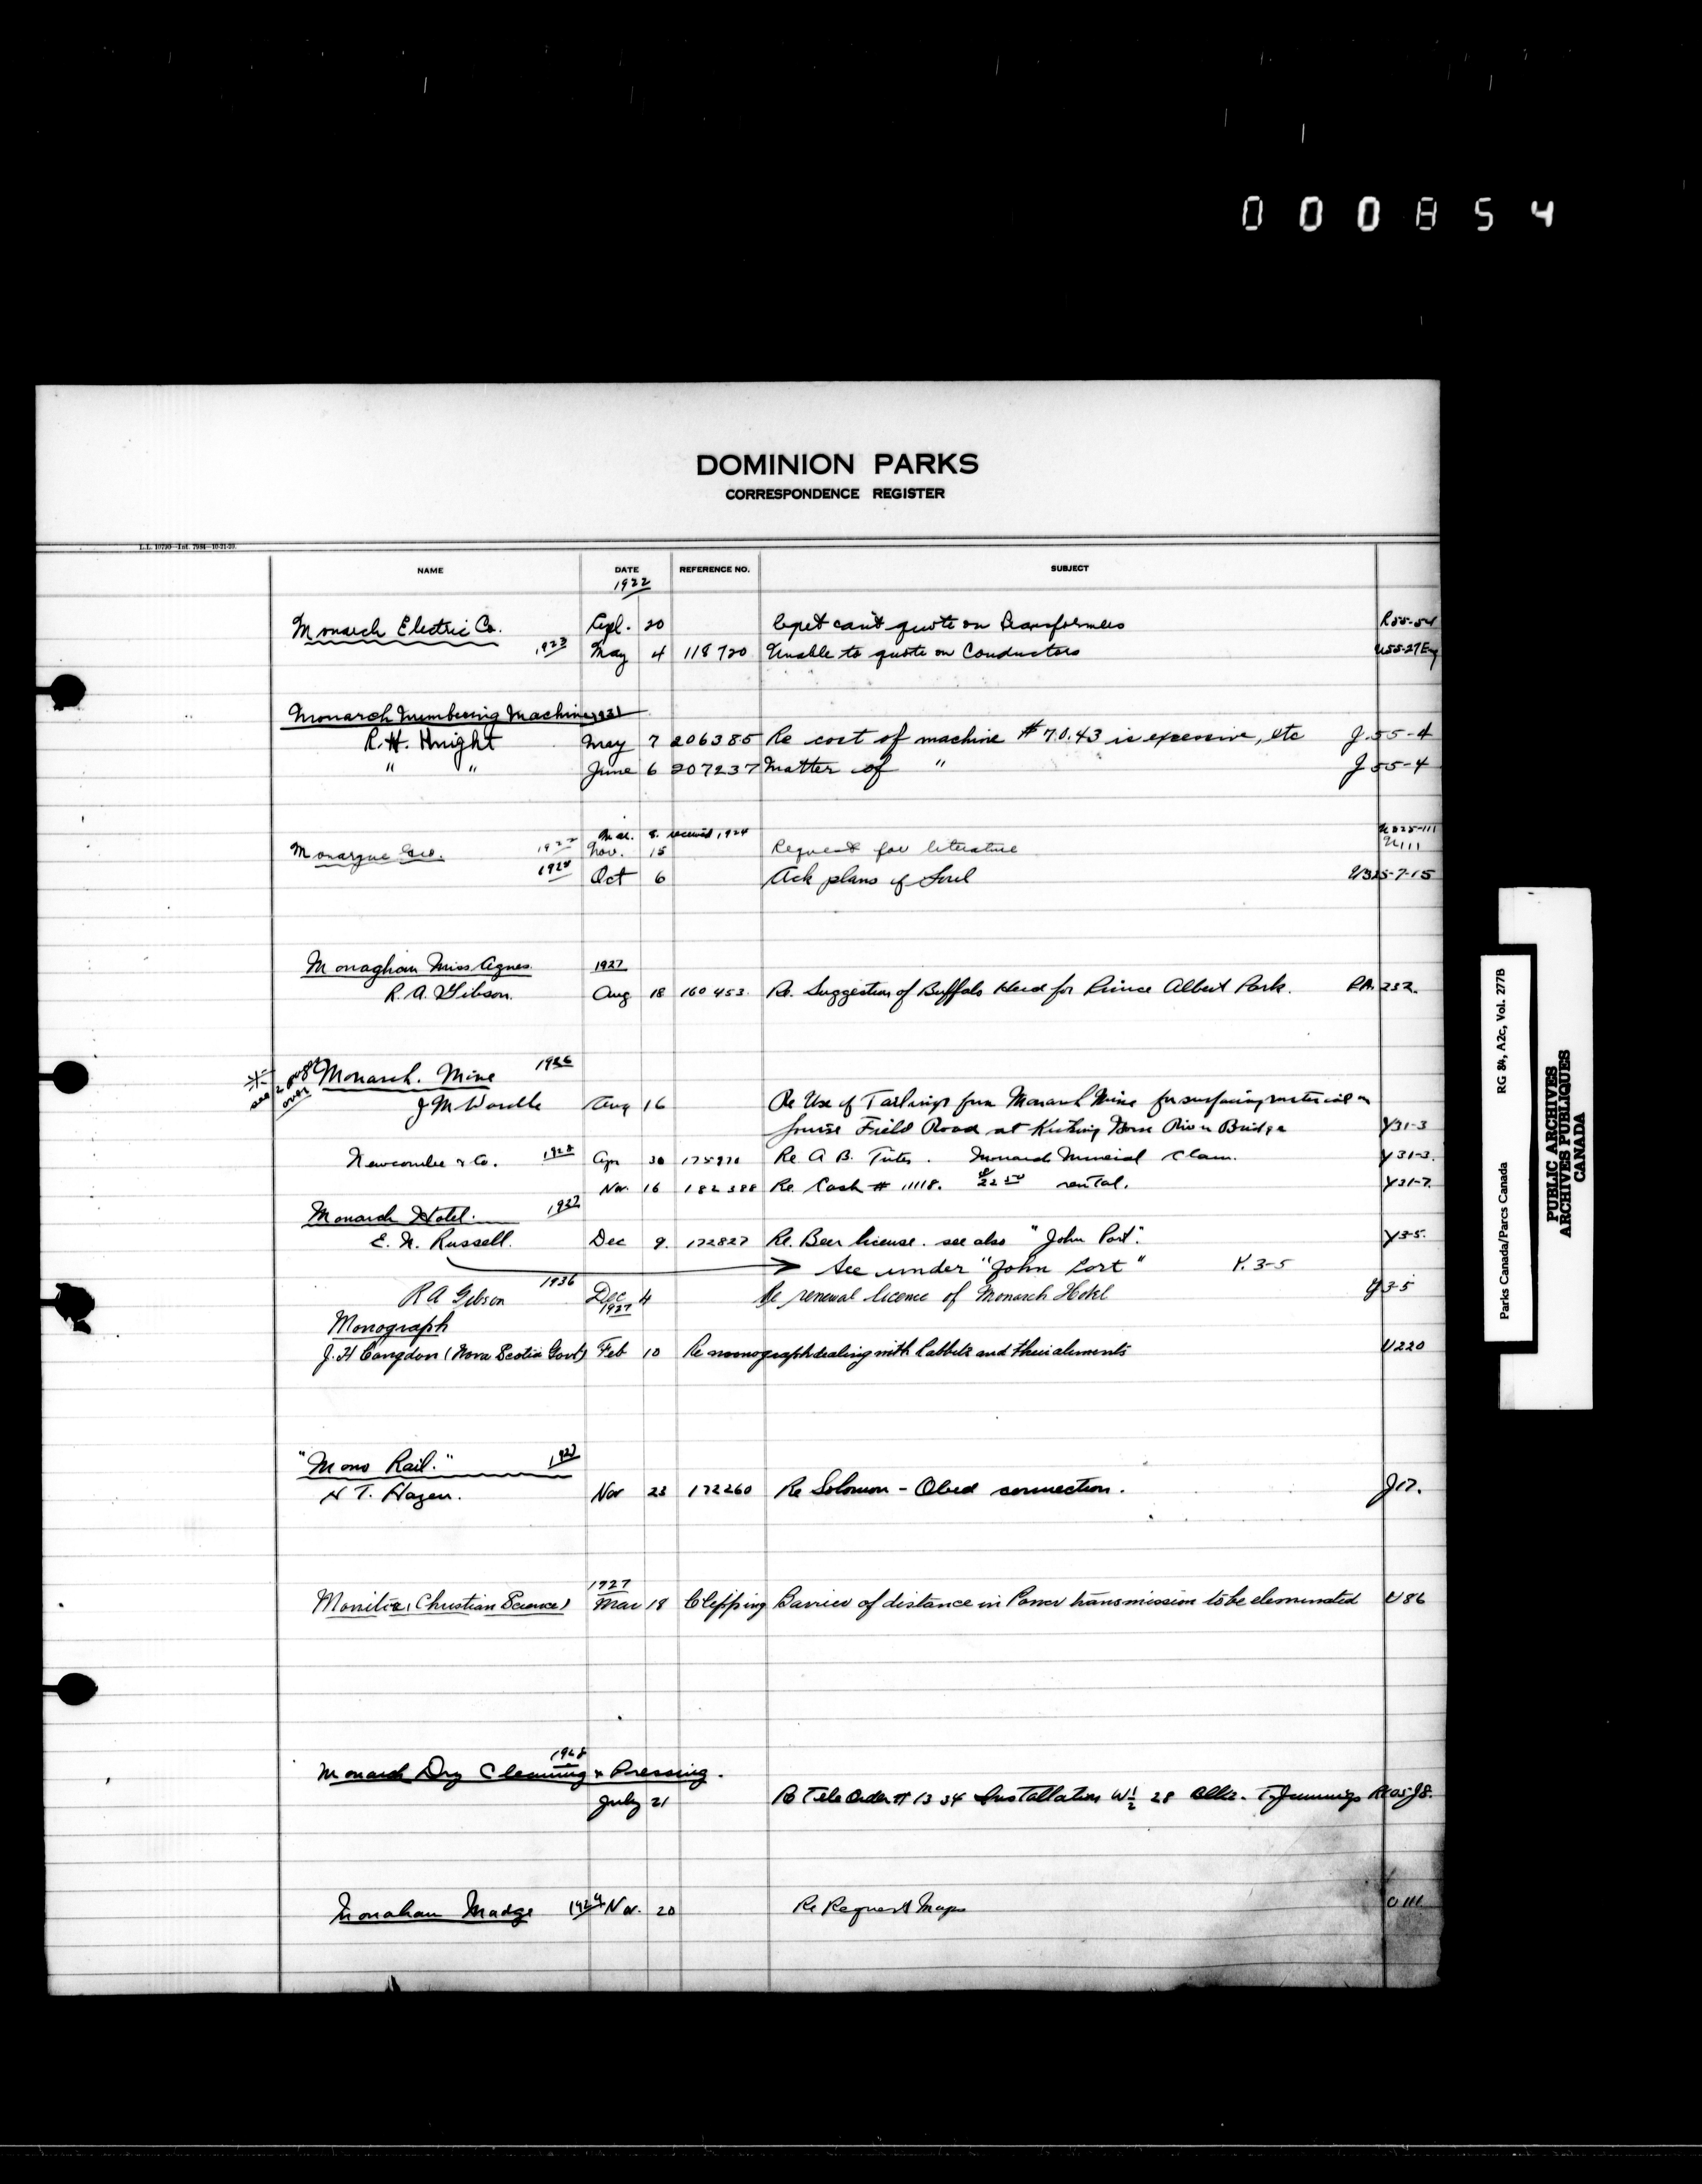 000854
DOMINION PARKS
CORRESPONDENCE REGISTER
L.L. 10790—Int. 7984—10-21-20.
NAME DATE REFERENCE NO. SUBJECT
1922
Monarch Electric Co. Apl. 20 Regret can't quote on Transformers R55-54
1923 May 4 118720 Unable to quote on Conductors U55-27 Eng
Monarch Numbering Machine 1931
R.H. Knight May 7 206385 Re cost of machine $70.43 is excessive, etc J.55-4
" " June 6 207237 Matter of " J 55-4
Mar. 8. received 1924 U325-111
Monarque Geo. 1922 Nov. 15 Request for literature U111
1924 Oct 6 Ack plans of U325-7-15
Monaghan Miss Agnes 1927
R. A. Gibson. Aug 18 160453. Re. Suggestion of Buffalo Herd for Prince Albert Park. P.A. 232.
see 2 pgs over Monarch. Mine 1926
J M Wardle Aug 16 Re Use of Tailings from Monarch Mine for surfacing material on
Field Road at Kicking Horse River Bridge Y31-3
Newcombe & Co. 1928 Apr 30 Re A B. Monarch Mineral Claim. Y31-3.
Nov. 16 182388 Re. Cash # 11118. $22.50 rental. Y31-7.
Monarch Hotel. 1927
E. N. Russell. Dec 9. 172827 Re. Beer license. see also "John Port". Y3-5.
See under "John Port" Y.3-5
R A Gibson 1936 Dec 4 Re renewal licence of Monarch Hotel Y3-5
Monograph 1927
J. H Congdon (Nova Scotia Govt) Feb 10 Re monograph dealing with Rabbits and their ailments U220
"Mono Rail." 1927
H T. Hazen. Nov 23 172260 Re Solomon - Obed connection. J17.
1927
Monitor (Christian Science) Mar 18 Clipping Barrier of distance in Power transmission to be eliminated U86
1928
Monarch Dry Cleaning & Pressing.
July 21 Re Tele Order # 1334 Installation W½ 28 Blk 2. T. Jennings
Monahan Madge 1924 Nov. 20 Re Request Maps U111
Parks Canada/Parcs Canada RG 84, A2c, Vol. 2777B
PUBLIC ARCHIVES
ARCHIVES PUBLIQUES
CANADA